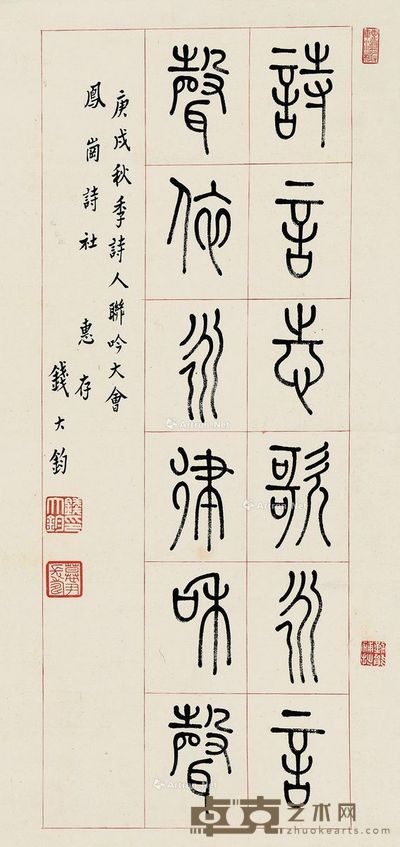 詩言志歌永言
聲依永律和聲
庚戌秋季詩人聯吟大會
鳳崗詩社 惠存
錢大鈞
卓克艺术网
zhuokearts.com